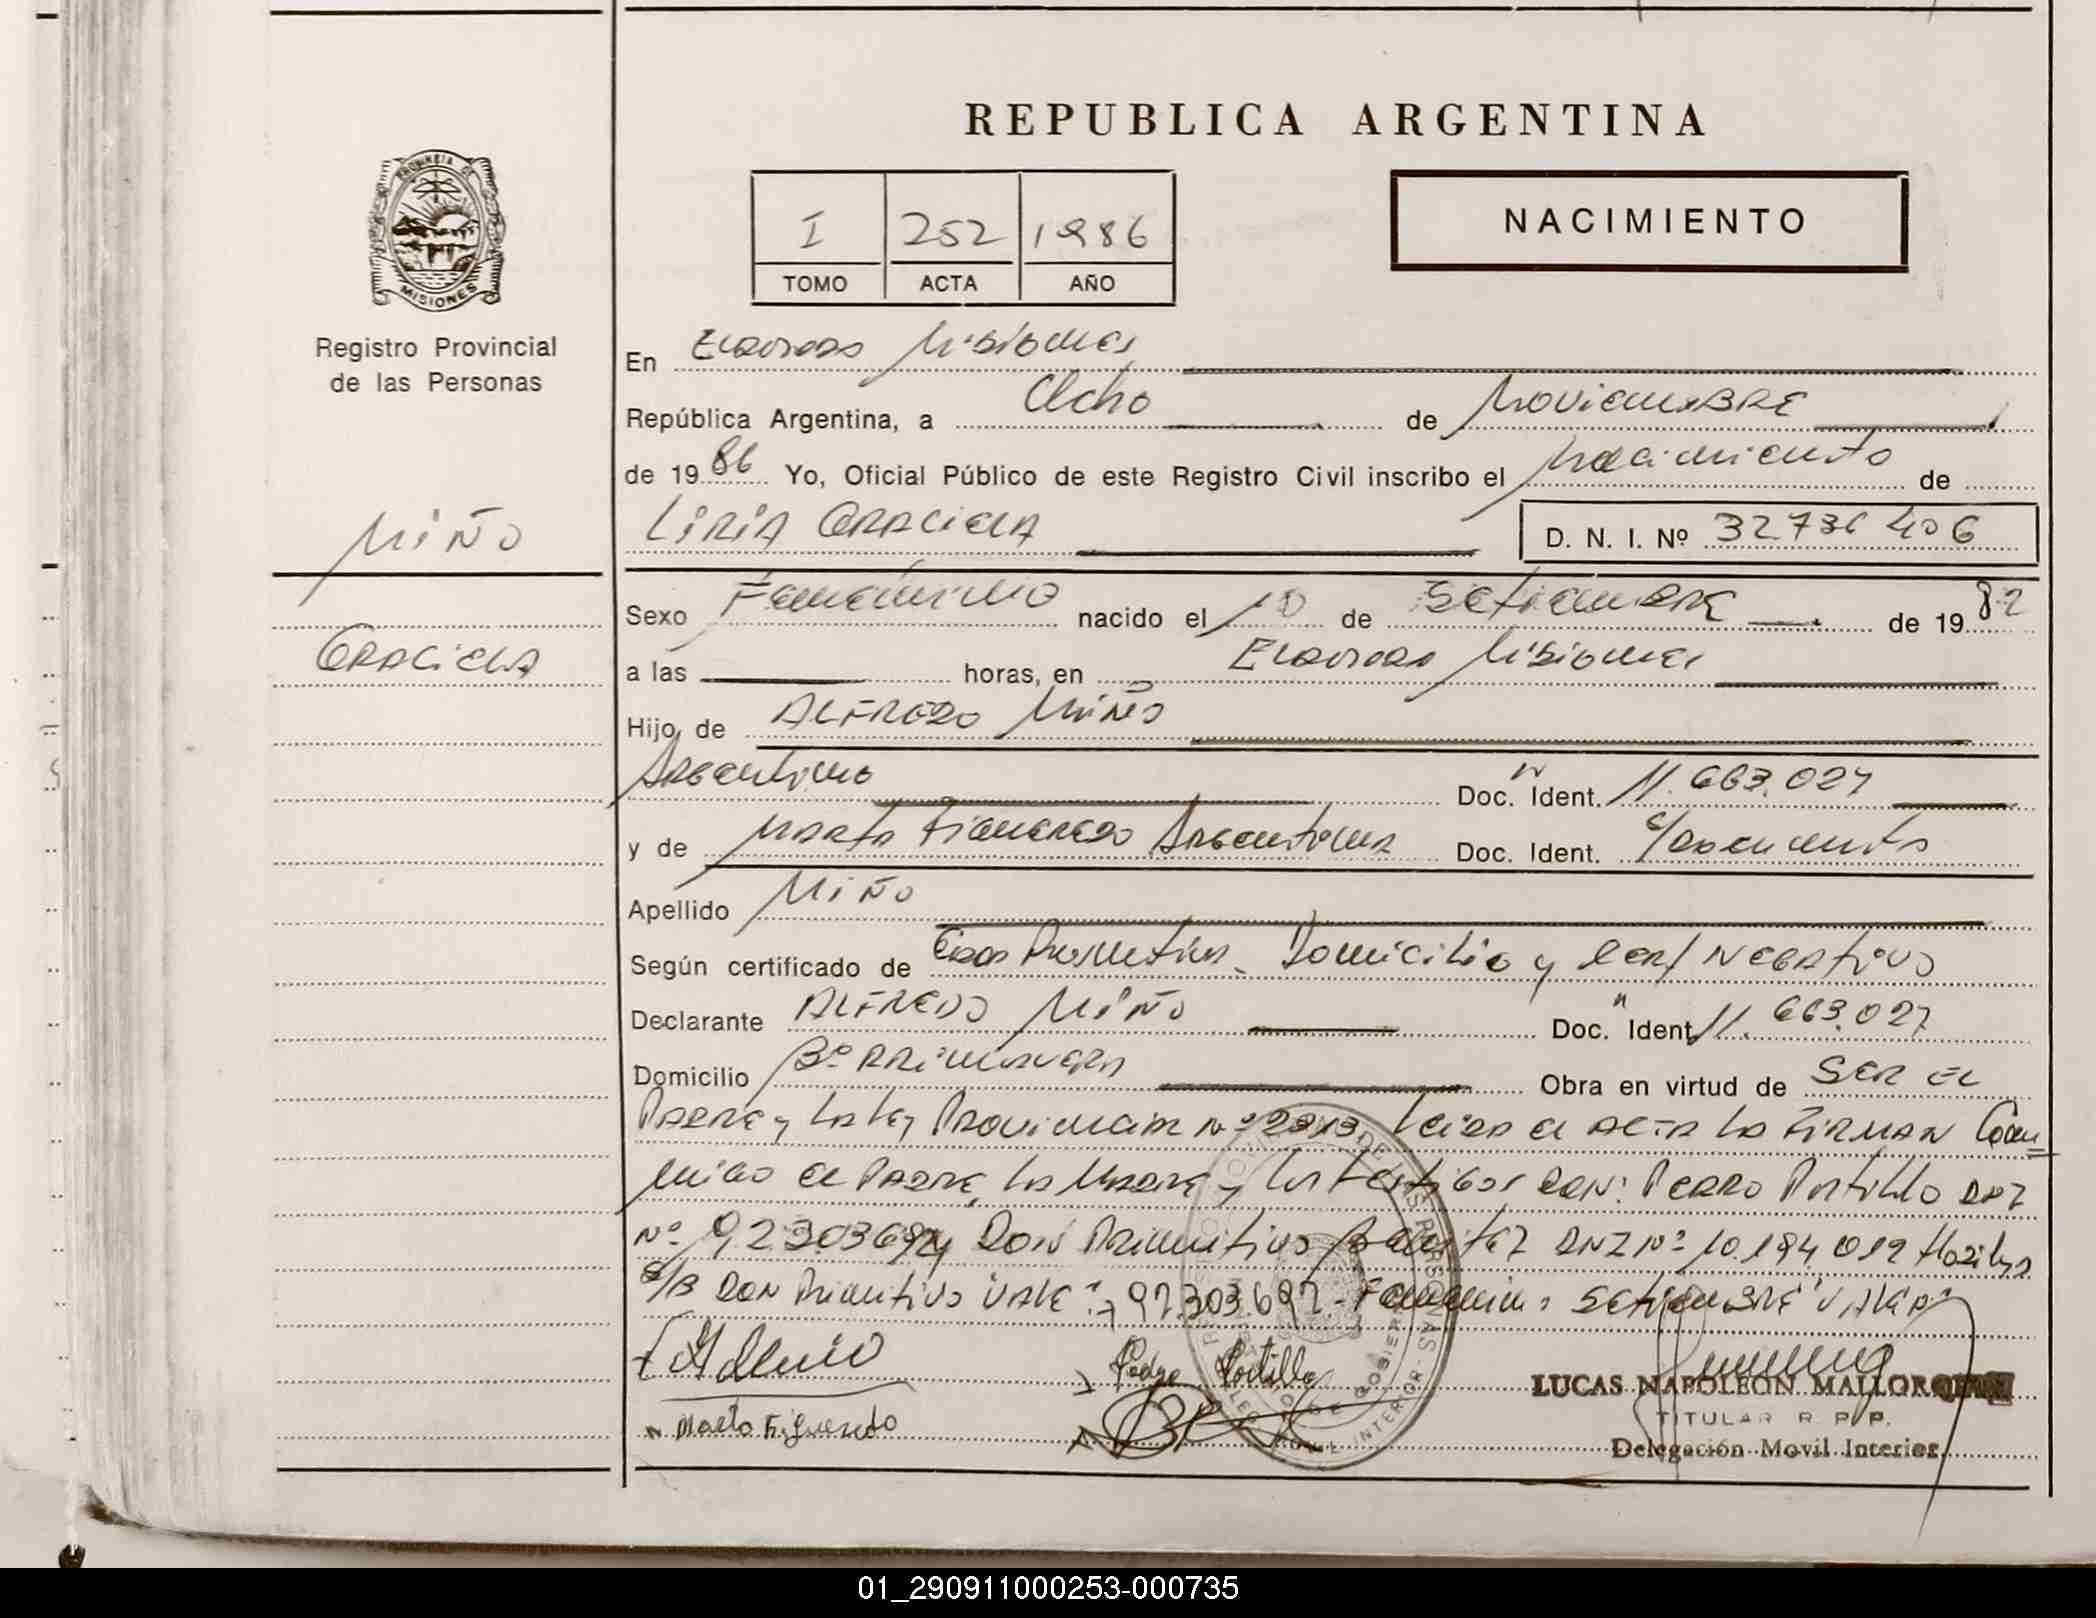 REPUBLICA ARGENTINA
PROVINCIA DE
MISIONES
Registro Provincial
de las Personas
I 252 1986
TOMO ACTA AÑO
NACIMIENTO
En Eldorado Misiones
República Argentina, a Ocho de Noviembre
de 1986 Yo, Oficial Público de este Registro Civil inscribo el Nacimiento de
MIÑO
LIRIA GRACIELA D. N. I. Nº 32.736 406
GRACIELA
Sexo Femenino nacido el 10 de Setiembre de 1982
a las horas, en Eldorado Misiones
Hijo de ALFREDO Miño
Argentino Doc. Ident. 11.663.027
y de Marta Figueredo Argentina Doc. Ident. s/documento
Apellido Miño
Según certificado de Domicilio y Cert/ Negativo
Declarante ALFREDO MIÑO Doc. Ident. 11.663.027
Domicilio Bº Primavera Obra en virtud de SER EL
PADRE y la Ley Provincial Nº Leida el ACTA LA FIRMAN Con
migo el PADRE, La Madre y los testigos DON: PEDRO Portillo DNI
Nº DON Primitivo DNI Nº 10.194.019
S/B DON Primitivo "VALE": 92.303.692.- Femenino Setiembre "VALEN"
Pedro Portillo
Marta Figueredo
LUCAS NAPOLEON MALLORQUIN
TITULAR R. P. P.
Delegación Movil Interior
01_290911000253-000735